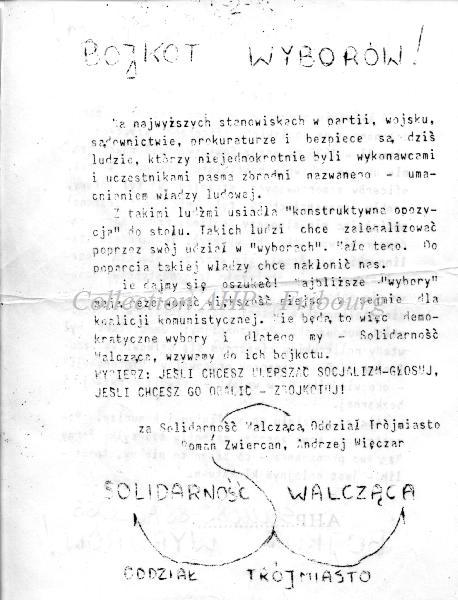 BOJKOT WYBORÓW!
Na najwyższych stanowiskach w partii, wojsku,
sądownictwie, prokuraturze i bezpiece są dziś
ludzie, którzy niejednokrotnie byli wykonawcami
i uczestnikami pasma zbrodni nazwanego - uma-
cnianiem władzy ludowej.
Z takimi ludźmi usiadła "konstruktywna opozy-
cja" do stołu. Takich ludzi chce zalegalizować
poprzez swój udział w "wyborach". Mało tego. Do
poparcia takiej władzy chce nakłonić nas.
Nie dajmy się oszukać! Najbliższe "wybory"
mają zezerwować większość miejsc w sejmie dla
koalicji komunistycznej. Nie będą to więc demo-
kratyczne wybory i dlatego my - Solidarność
Walcząca, wzywamy do ich bojkotu.
WYBIERZ: JEŚLI CHCESZ ULEPSZAĆ SOCJALIZM-GŁOSUJ,
JEŚLI CHCESZ GO OBALIĆ - ZBOJKOTUJ!
za Solidarność Walcząca, Oddział Trójmiasto
Roman Zwiercan, Andrzej Więczar
SOLIDARNOŚĆ WALCZĄCA
ODDZIAŁ TRÓJMIASTO